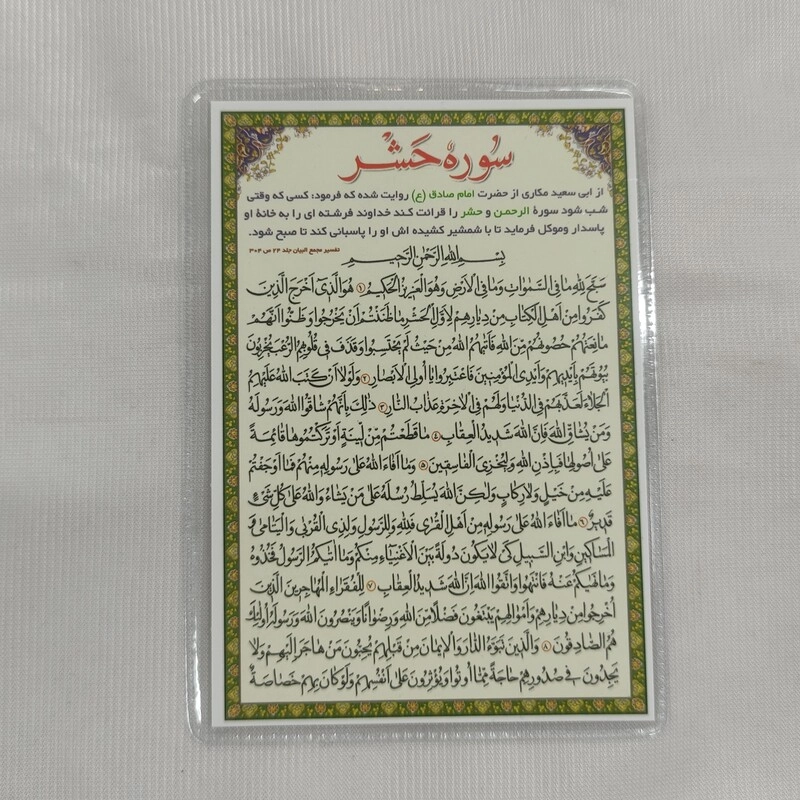 سوره حشر
از ابی سعید مکاری از حضرت امام صادق (ع) روایت شده که فرمود: کسی که وقتی
شب شود سورهٔ الرحمن و حشر را قرائت کند خداوند فرشته ای را به خانهٔ او
پاسدار وموکل فرماید تا با شمشیر کشیده اش او را پاسبانی کند تا صبح شود.
تفسیر مجمع البیان جلد ۲۴ ص ۳۰۴
بِسْمِ اللهِ الرَّحْمٰنِ الرَّحِیمِ
سَبَّحَ لِلّٰهِ مَا فِی السَّمٰوَاتِ وَمَا فِی الْاَرْضِ وَهُوَ الْعَزِیزُ الْحَکِیمُ ۱ هُوَ الَّذِی اَخْرَجَ الَّذِینَ
کَفَرُوا مِنْ اَهْلِ الْکِتَابِ مِنْ دِیَارِهِمْ لِاَوَّلِ الْحَشْرِ مَا ظَنَنْتُمْ اَنْ یَخْرُجُوا وَظَنُّوا اَنَّهُمْ
مَانِعَتُهُمْ حُصُونُهُمْ مِنَ اللهِ فَاَتٰیهُمُ اللهُ مِنْ حَیْثُ لَمْ یَحْتَسِبُوا وَقَذَفَ فِی قُلُوبِهِمُ الرُّعْبَ یُخْرِبُونَ
بُیُوتَهُمْ بِاَیْدِیهِمْ وَاَیْدِی الْمُؤْمِنِینَ فَاعْتَبِرُوا یَا اُولِی الْاَبْصَارِ ۲ وَلَوْلَا اَنْ کَتَبَ اللهُ عَلَیْهِمُ
الْجَلَاءَ لَعَذَّبَهُمْ فِی الدُّنْیَا وَلَهُمْ فِی الْاٰخِرَةِ عَذَابُ النَّارِ ۳ ذٰلِکَ بِاَنَّهُمْ شَاقُّوا اللهَ وَرَسُولَهُ
وَمَنْ یُشَاقِّ اللهَ فَاِنَّ اللهَ شَدِیدُ الْعِقَابِ ٤ مَا قَطَعْتُمْ مِنْ لِینَةٍ اَوْ تَرَکْتُمُوهَا قَائِمَةً
عَلٰی اُصُولِهَا فَبِاِذْنِ اللهِ وَلِیُخْزِیَ الْفَاسِقِینَ ۵ وَمَا اَفَاءَ اللهُ عَلٰی رَسُولِهِ مِنْهُمْ فَمَا اَوْجَفْتُمْ
عَلَیْهِ مِنْ خَیْلٍ وَلَا رِکَابٍ وَلٰکِنَّ اللهَ یُسَلِّطُ رُسُلَهُ عَلٰی مَنْ یَشَاءُ وَاللهُ عَلٰی کُلِّ شَیْءٍ
قَدِیرٌ ٦ مَا اَفَاءَ اللهُ عَلٰی رَسُولِهِ مِنْ اَهْلِ الْقُرٰی فَلِلّٰهِ وَلِلرَّسُولِ وَلِذِی الْقُرْبٰی وَالْیَتَامٰی وَ
الْمَسَاکِینِ وَابْنِ السَّبِیلِ کَیْ لَا یَکُونَ دُولَةً بَیْنَ الْاَغْنِیَاءِ مِنْکُمْ وَمَا اٰتٰیکُمُ الرَّسُولُ فَخُذُوهُ
وَمَا نَهٰیکُمْ عَنْهُ فَانْتَهُوا وَاتَّقُوا اللهَ اِنَّ اللهَ شَدِیدُ الْعِقَابِ ۷ لِلْفُقَرَاءِ الْمُهَاجِرِینَ الَّذِینَ
اُخْرِجُوا مِنْ دِیَارِهِمْ وَاَمْوَالِهِمْ یَبْتَغُونَ فَضْلًا مِنَ اللهِ وَرِضْوَانًا وَیَنْصُرُونَ اللهَ وَرَسُولَهُ اُولٰئِکَ
هُمُ الصَّادِقُونَ ۸ وَالَّذِینَ تَبَوَّءُو الدَّارَ وَالْاِیمَانَ مِنْ قَبْلِهِمْ یُحِبُّونَ مَنْ هَاجَرَ اِلَیْهِمْ وَلَا
یَجِدُونَ فِی صُدُورِهِمْ حَاجَةً مِمَّا اُوتُوا وَیُؤْثِرُونَ عَلٰی اَنْفُسِهِمْ وَلَوْ کَانَ بِهِمْ خَصَاصَةٌ